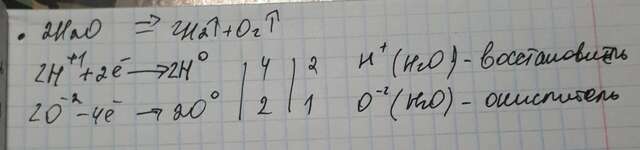 • 2H2O => 2H2↑+O2↑
2H⁺¹+2ē→2H⁰ | 4 | 2 H⁺(H2O) - восстановить
2O⁻²-4ē→2O⁰ | 2 | 1 O⁻²(H2O) - окислитель